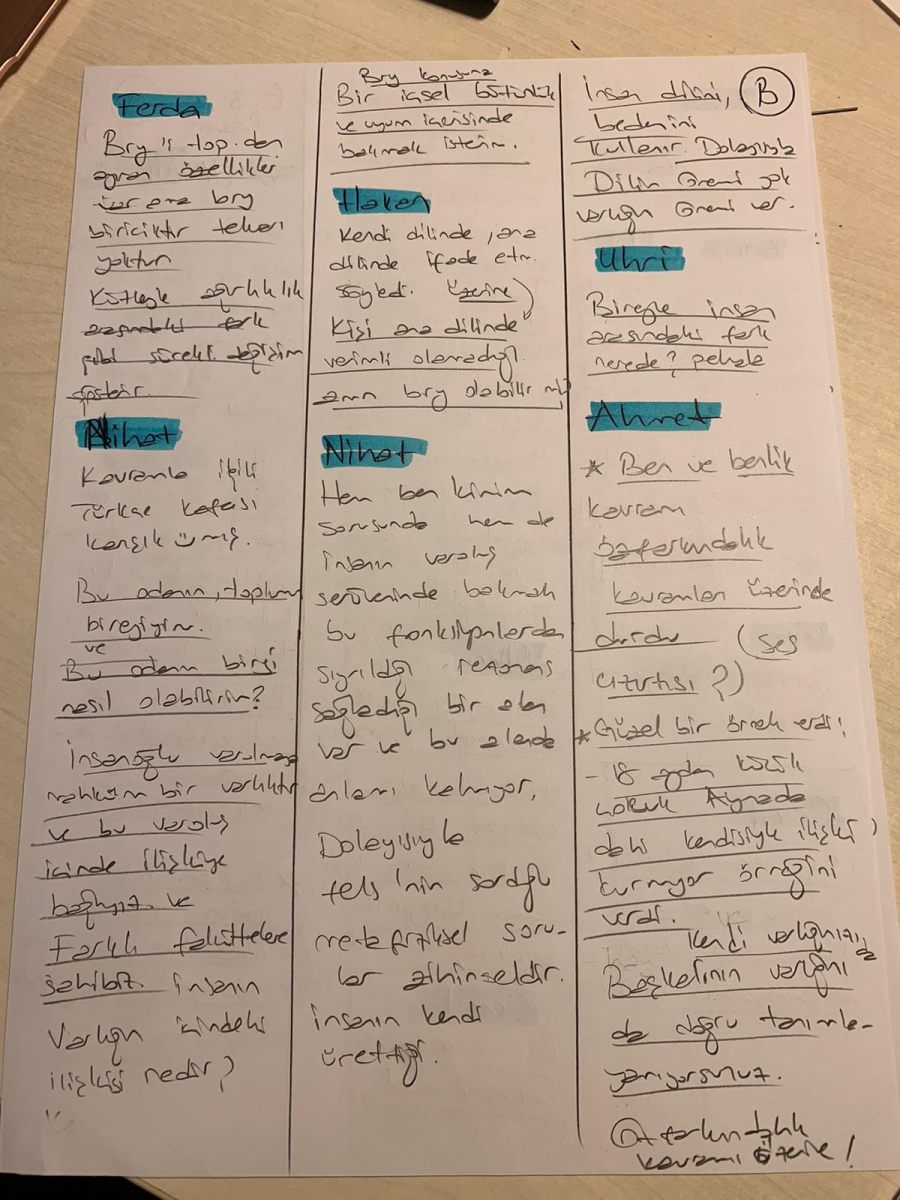 Ferda
Bry 'i top. dan
ayıran özellikleri
var ama bry
biriciktir tekrarı
yoktur
Kütleyle ağırlıklılık
arasındaki fark
gibi sürekli değişim
gösterir.
Nihat
Kavramla ilgili
Türkçe kafası
karışık
Bu odanın, toplum
bireyiyim.
ve
Bu odanın bireyi
nasıl olabilirim?
İnsanoğlu varolmaya
mahkum bir varlıktır
ve bu varoluş
içinde ilişkiye
bağlıyız. ve
Farklı fakültelere
sahibiz. insanın
Varlığın içindeki
ilişkisi nedir?
Bry konusuna
Bir içsel bütünlük
ve uyum içerisinde
bakmak isterim.
Hakan
Kendi dilinde, ana
dilinde ifade etm.
söyledi. üzerine
Kişi ana dilinde
verimli olamadığı
bry olabilir mi?
Nihat
Hem ben kimim
sorusunda hem de
insanın varoluş
serüveninde bakmak
bu fonksiyonlardan
sıyrıldığı rezonans
sağladığı bir alan
var ve bu alanda
anlamı kalmıyor.
Dolayısıyla
fels'nin sorduğu
metafiziksel soru-
lar zihinseldir.
insanın kendi
ürettiği.
B
İnsan dilini,
bedenini
Kullanır. Dolayısıyla
Dilin önemi yok
varlığın önemi var.
Uhri
Bireyle insan
arasındaki fark
nerede? pekala
Ahmet
* Ben ve benlik
kavram
özfarkındalık
kavramları üzerinde
durdu (ses
cızırtısı?)
* Güzel bir örnek verdi!
- 18 aydan küçük
çocuk Aynada
daki kendisiyle ilişki
kurmuyor örneğini
verdi.
Kendi varlığınızı da
Başkalarının varlığını
da doğru tanımla-
yamıyorsunuz.
Özfarkındalık
kavramı üzerine!